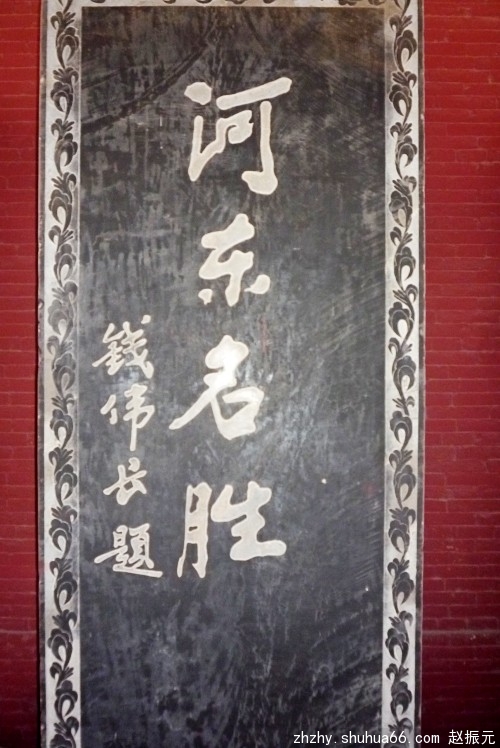 河东名胜
钱伟长题
zhzhy.shuhua66.com 赵振元